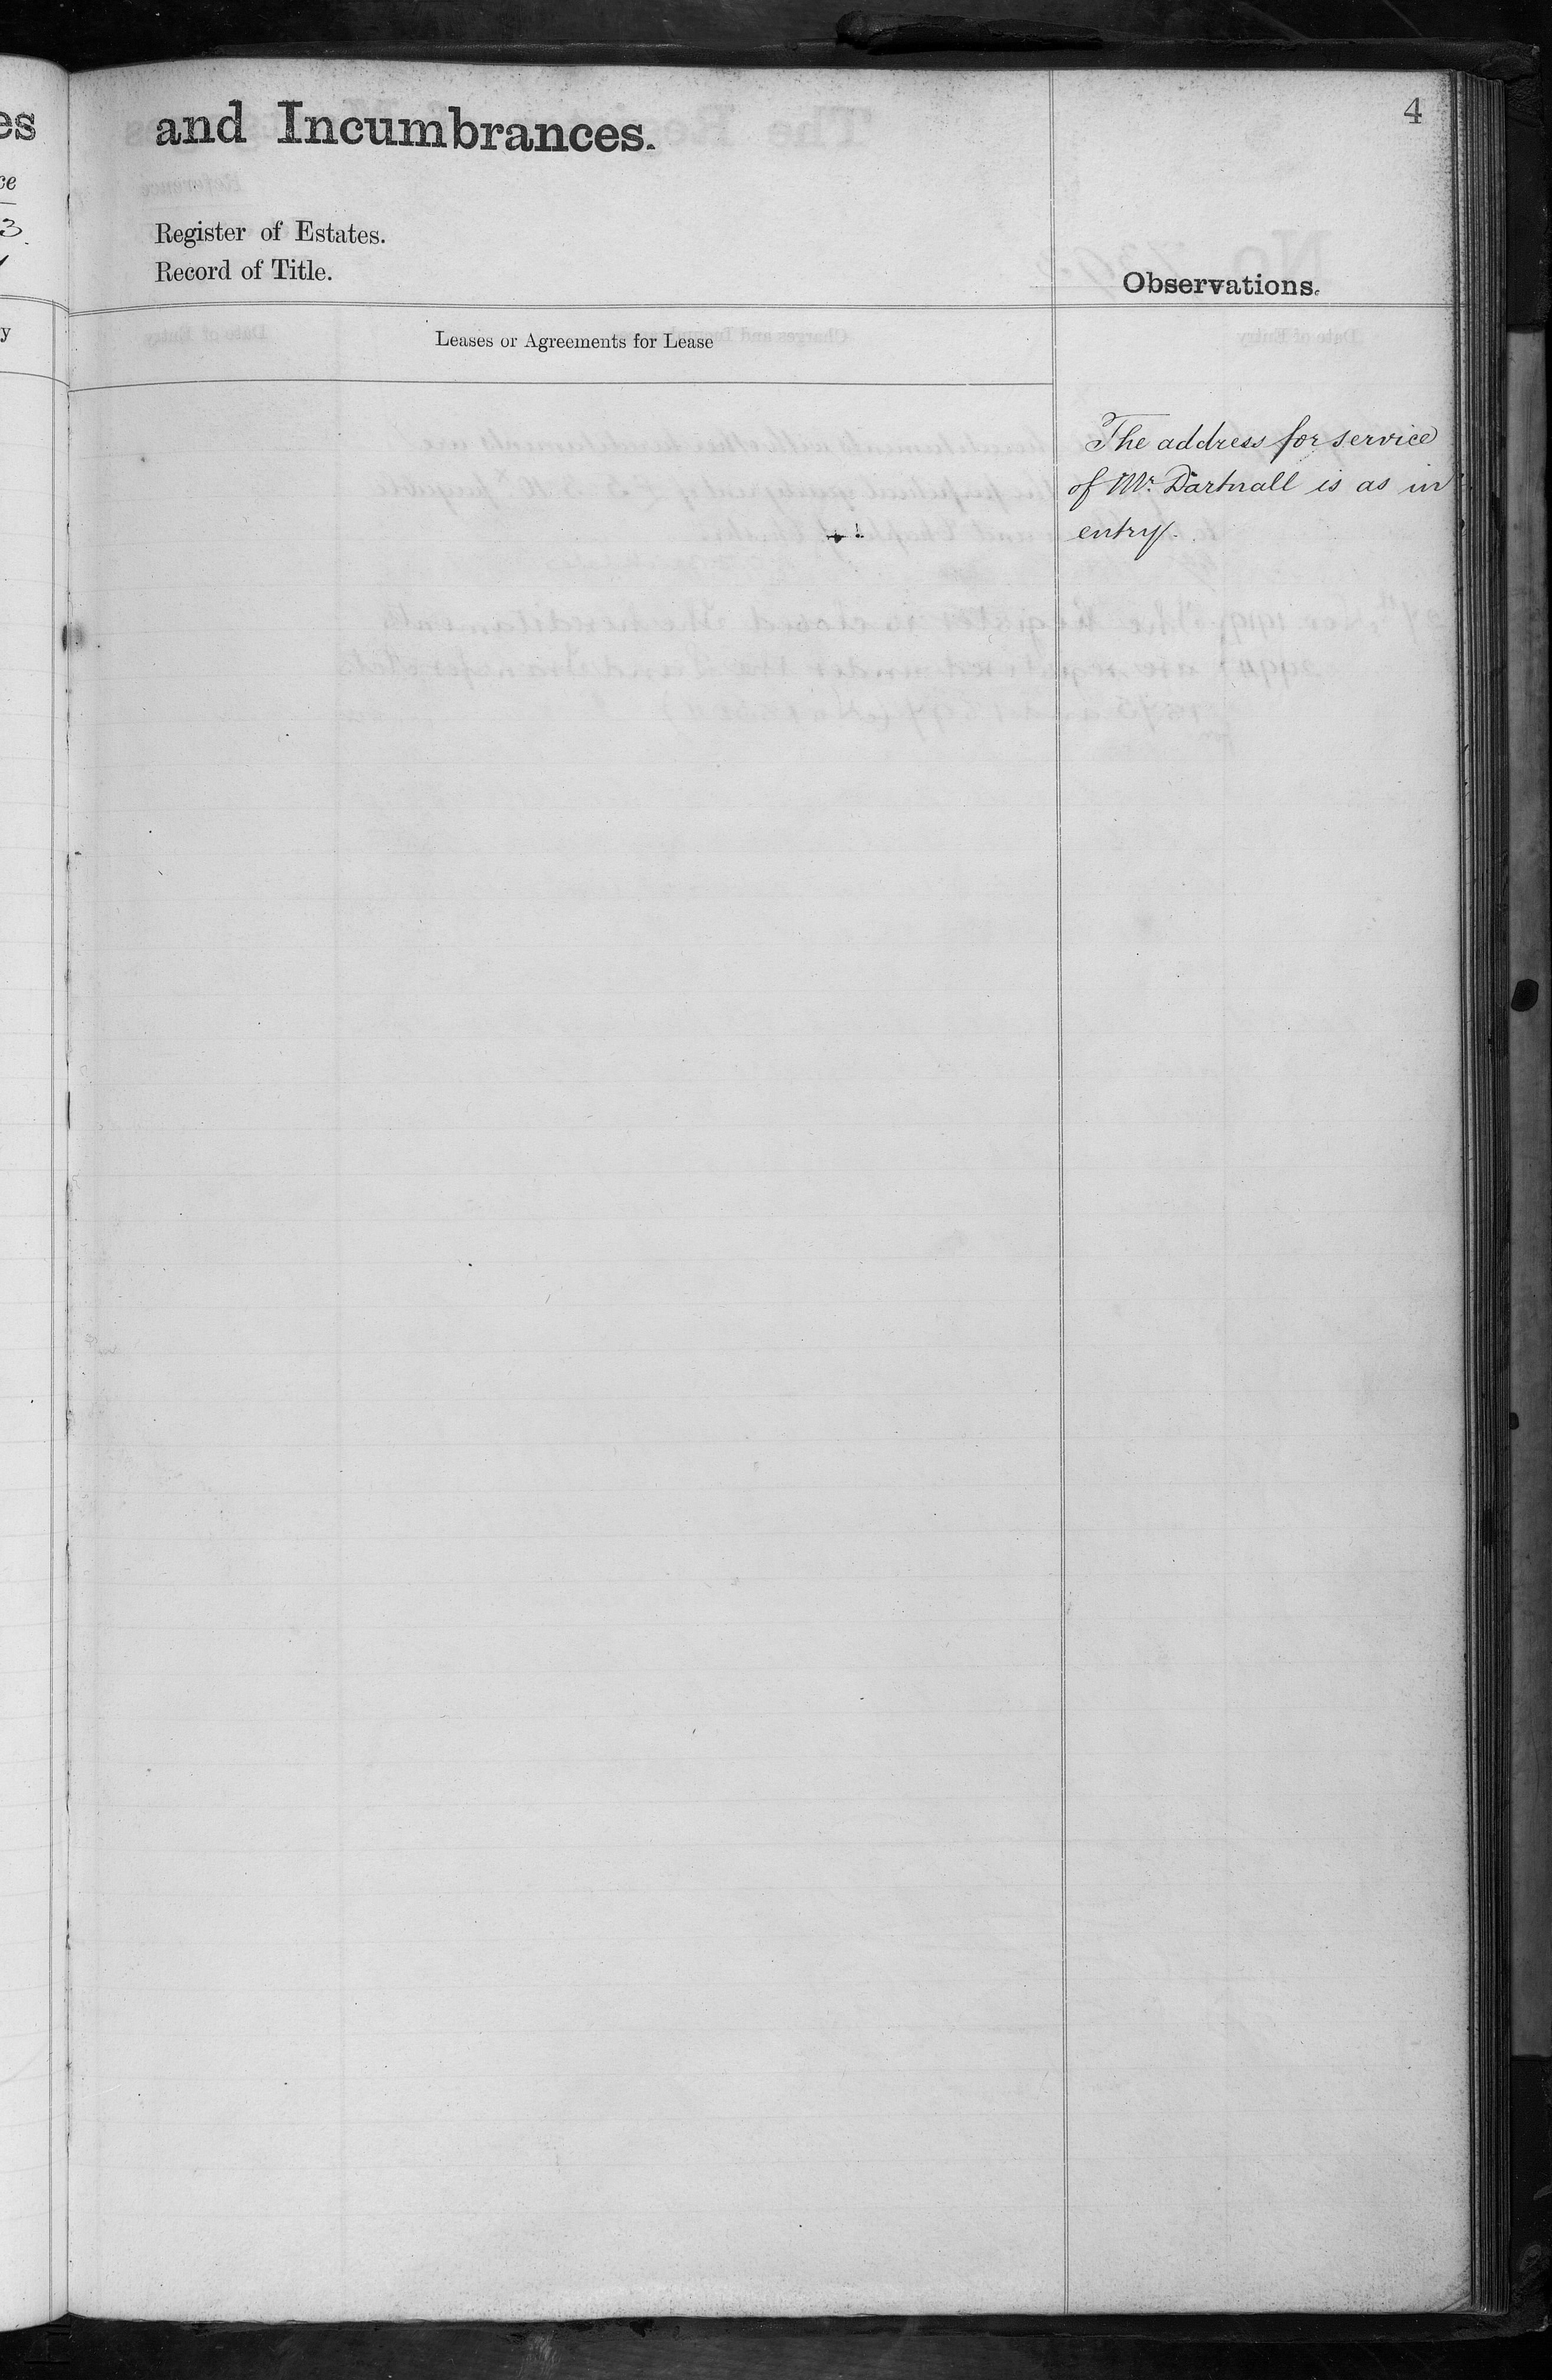 and Incumbrances.
4
Register of Estates.
Record of Title.
Observations.
Leases or Agreements for Lease
The address for service
of Mr. Dartnall is as in
entry.